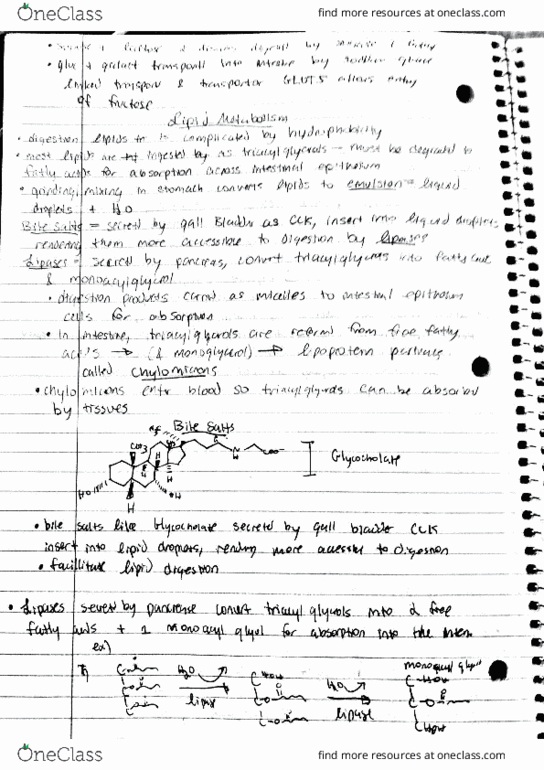 OneClass
find more resources at oneclass.com
• glu + galact transport into by sodium
linked transport & transporter GLUT5 allows entry
of fructose
Lipid Metabolism
• digestion lipids is complicated by hydrophobicity
• most lipids are ingested as triacylglycerols – must be degraded to
fatty acids for absorption across intestinal epithelium
• grinding/mixing in stomach converts lipids to emulsion = liquid
droplets + H2O
Bile Salts = secreted by gall Bladder as CCK, insert into liquid droplets
rendering them more accessible to digestion by lipases
Lipases = secreted by pancreas, convert triacylglycerols into fatty acids
& monoacylglycerol
• digestion products carried as micelles to intestinal epithelium
cells for absorption
• In intestine, triacylglycerols are reformed from free fatty
acids → (& monoglycerol) → lipoprotein
called chylomicrons
• chylomicrons enter blood so triacylglycerols can be absorbed
by tissues
Bile Salts
CH3
H
H
H
N
COO-
HO
H
H
Glycocholate
• bile salts like Glycocholate secreted by gall bladder CCK
insert into lipid droplets, rendering more accessible to digestion
• facilitate lipid digestion
• Lipases secreted by pancrease convert triacyl glycerols into 2 free
fatty acids + 1 monoacyl glycerol for absorption into the
ex)
monoacyl glycerol
H2O
lipase
H2O
lipase
OneClass
find more resources at oneclass.com